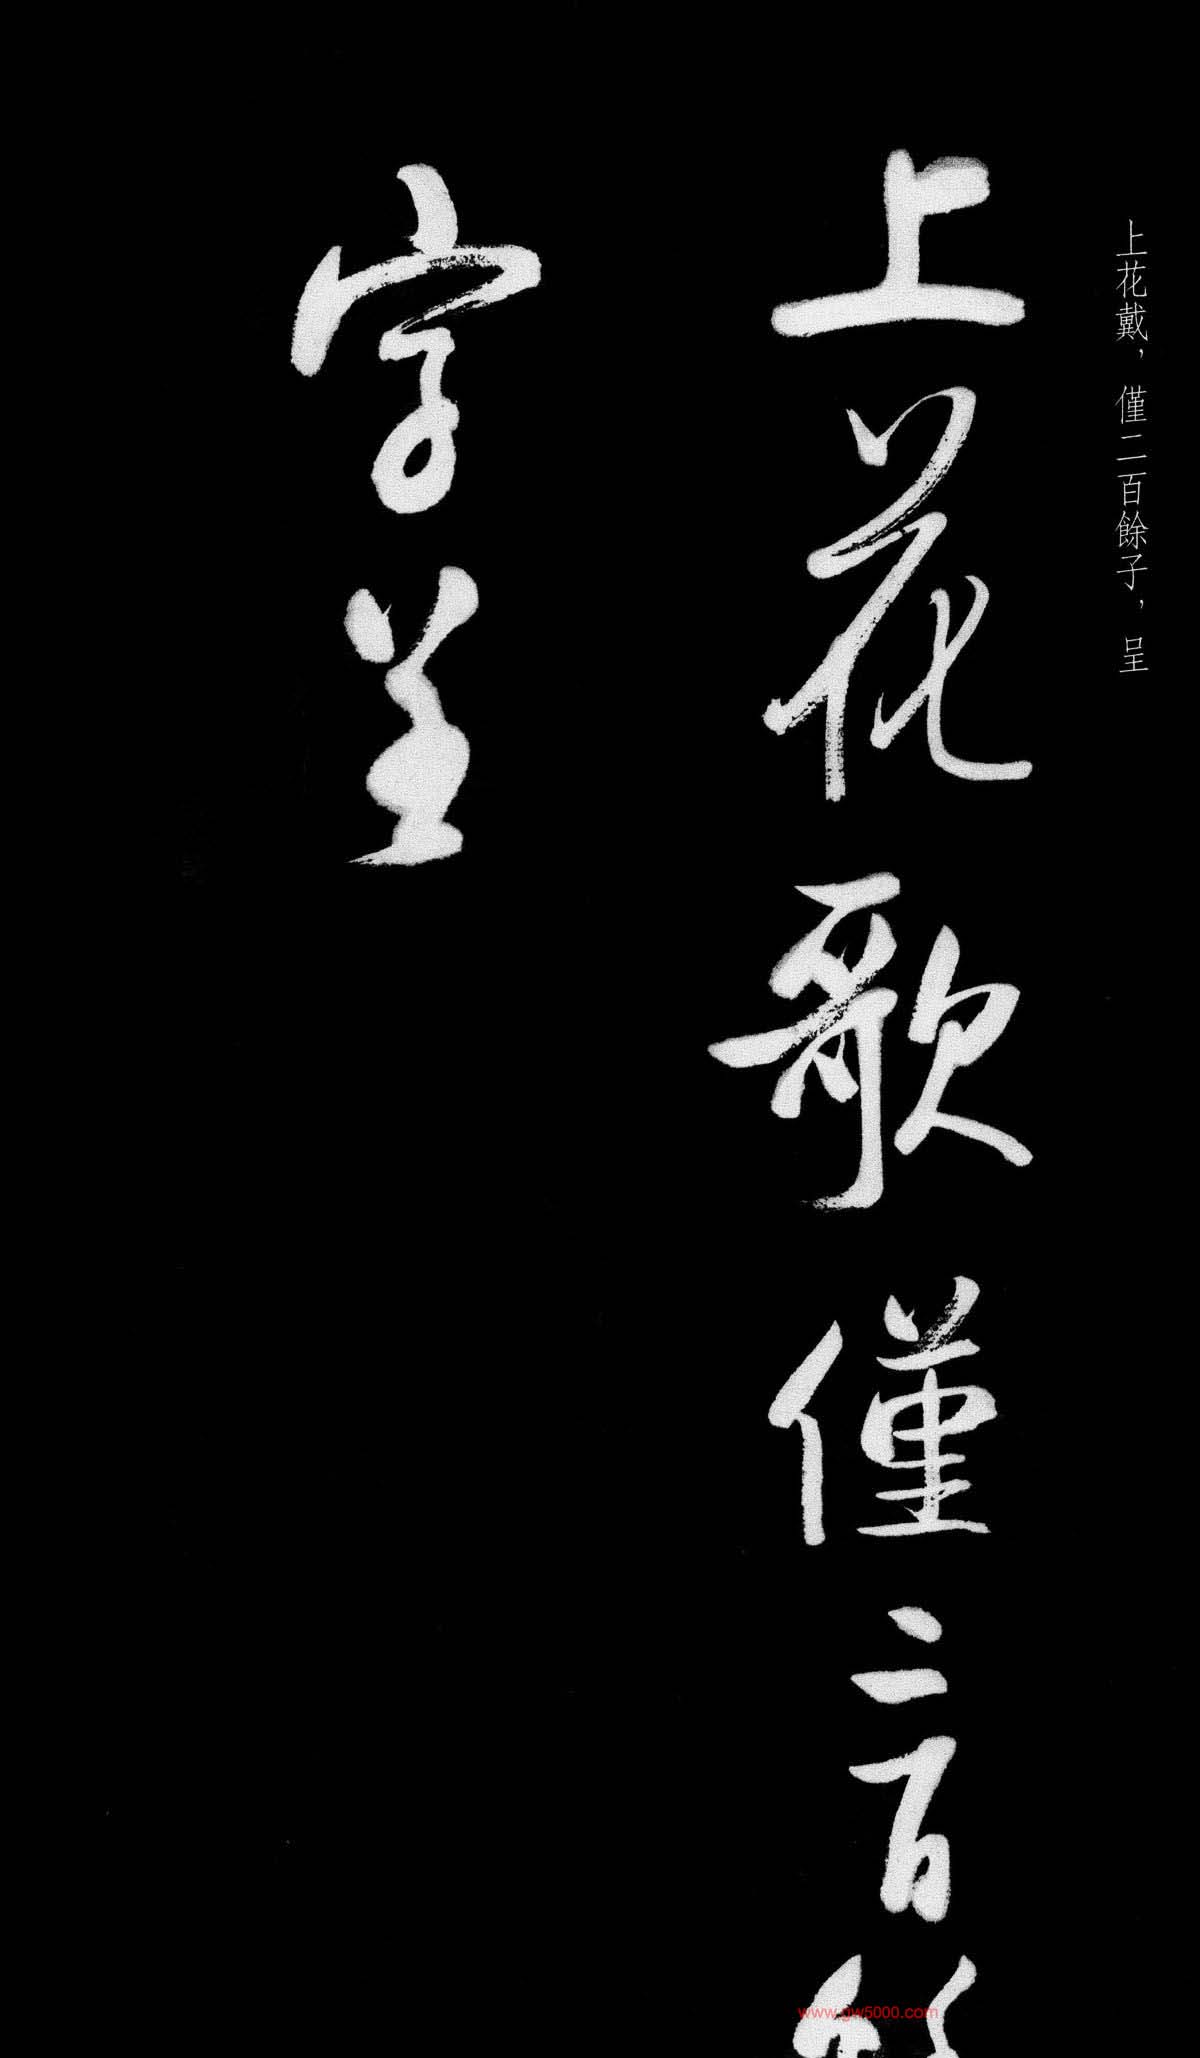 上花戴，僅二百餘子，呈
上花歌僅二百
字呈
www.gw5000.com